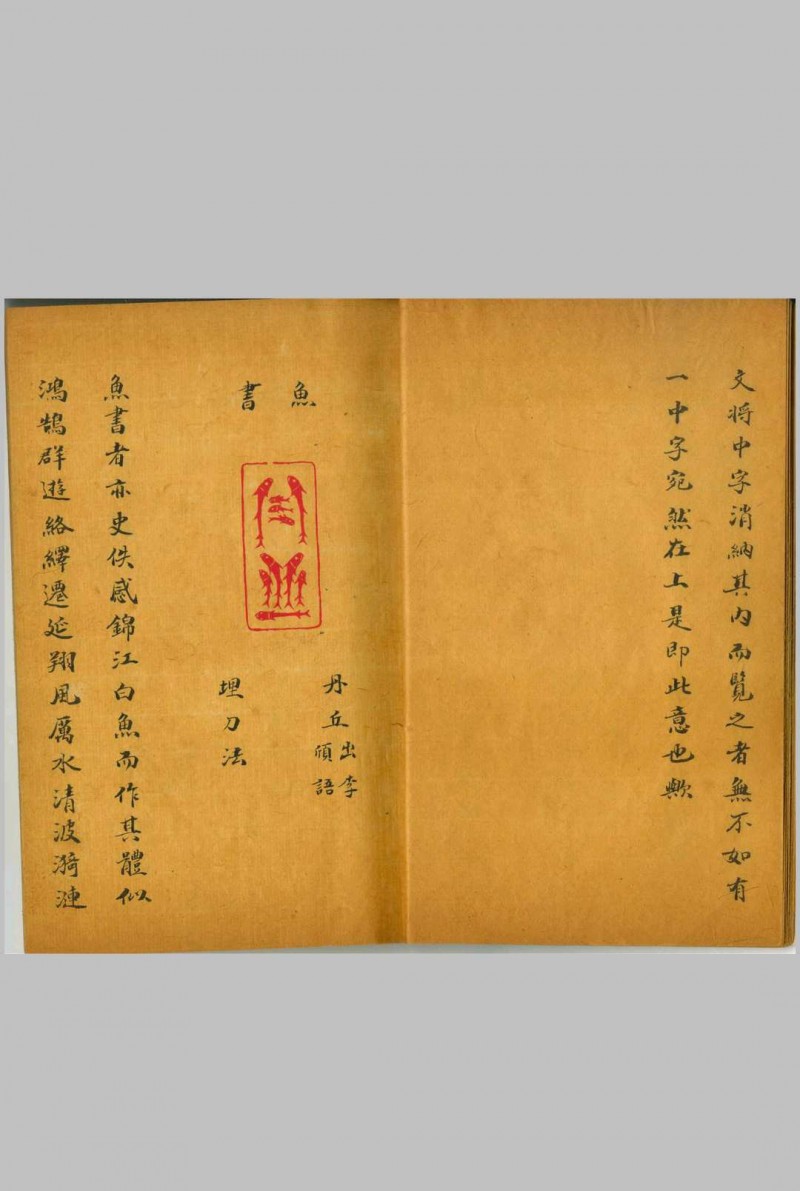 文将中字消納其内而覽之者無不如有
一中字宛然在上是即此意也歟
魚書
丹丘出李頎語
埋刀法
魚書者亦史佚感錦江白魚而作其體似
鴻鵠群遊絡繹遷延翔風厲水清波漪漣